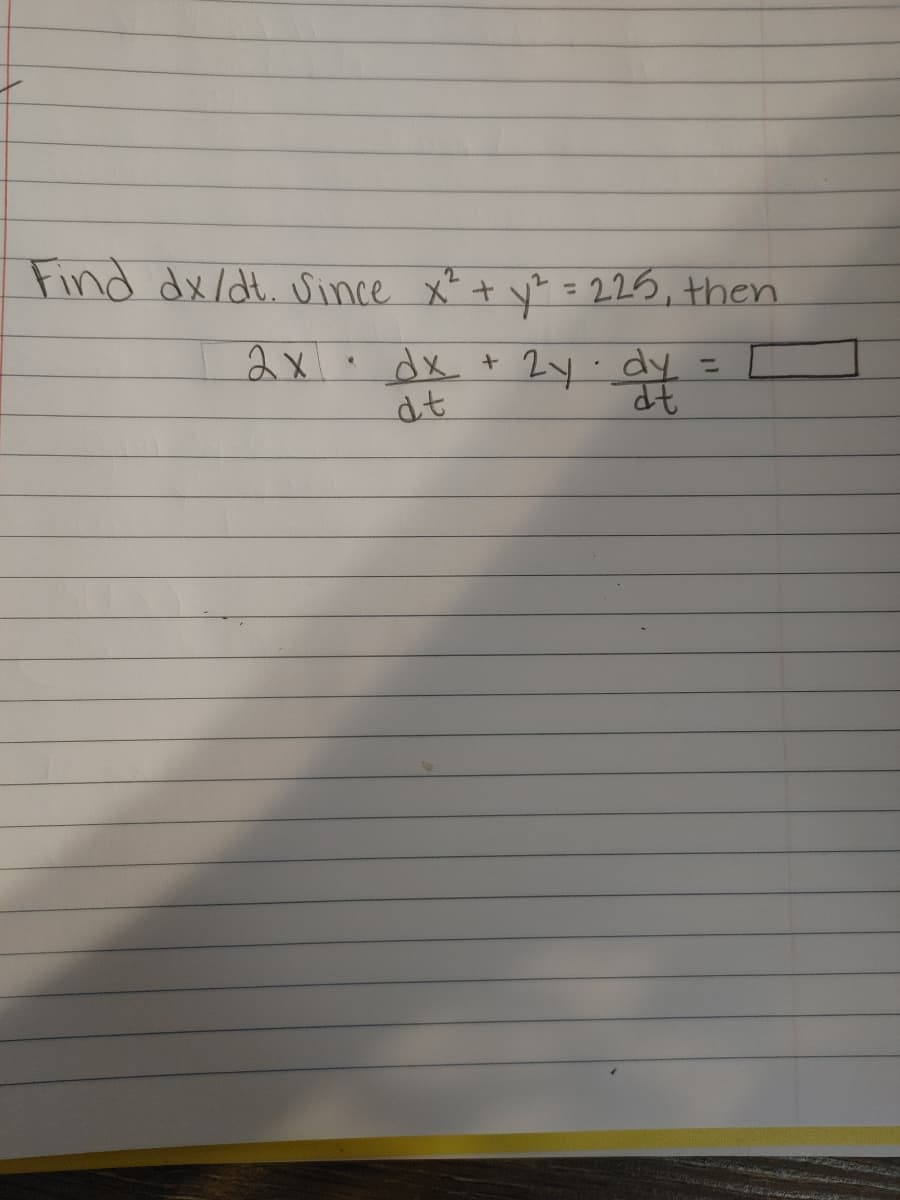 Find dx/dt. Since x² + y² = 225, then
2x · dx/dt + 2y · dy/dt = □